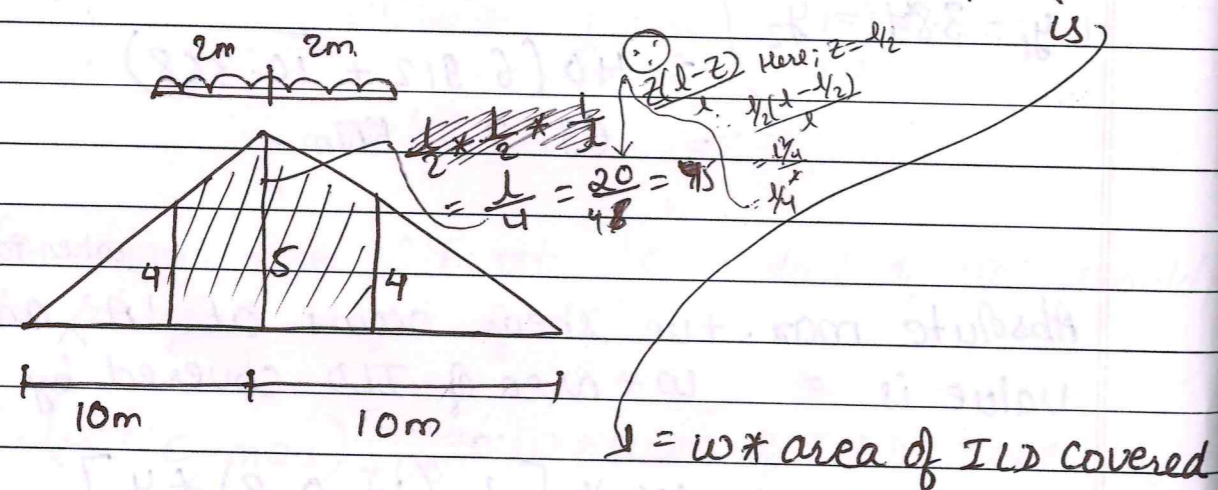 is
2m 2m
z(l-z)/l Here; z = l/2
l/2(l-l/2)/l
l/2 * l/2 * 1/l
= l²/4/l
= l/4 = 20/4 = 5
= l/4
4 5 4
10m 10m
= w * area of ILD covered